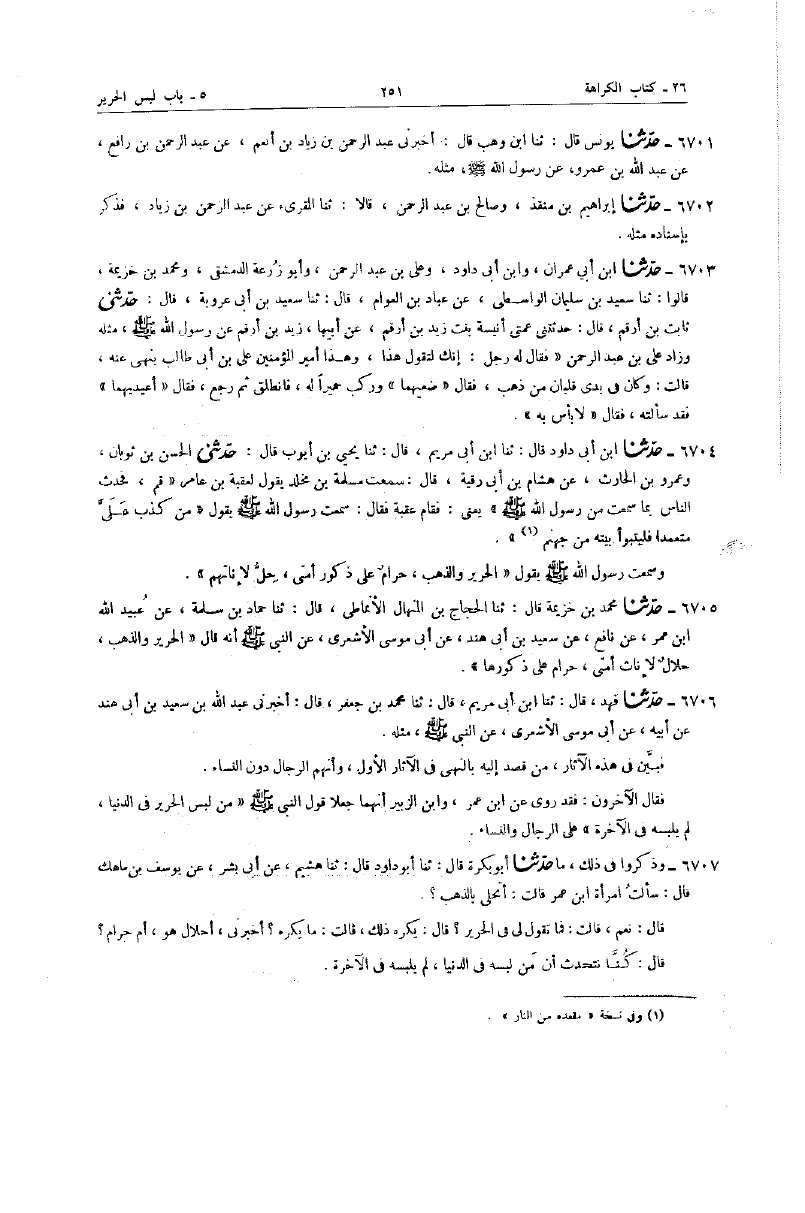 ٢٦ - كتاب الكراهة
٢٥١
٥ - باب لبس الحرير
٦٧٠١ - حدّثنا يونس قال : ثنا ابن وهب قال : أخبرنى عبد الرحمن بن زياد بن أنعم ، عن عبد الرحمن بن رافع ،
عن عبد الله بن عمرو، عن رسول الله ﷺ، مثله.
٦٧٠٢ - حدّثنا إبراهيم بن منقذ ، وصالح بن عبد الرحمن ، قالا : ثنا المقرىء عن عبد الرحمن بن زياد ، فذكر
بإسناده مثله .
٦٧٠٣ - حدّثنا ابن أبي عمران ، وابن أبى داود ، وعلى بن عبد الرحمن ، وأبو زُرعة الدمشقى ، ومحمد بن خزيمة ،
قالوا : ثنا سعيد بن سليمان الواسطى ، عن عباد بن العوام ، قال : ثنا سعيد بن أبى عروبة ، قال : حدّثنى
ثابت بن أرقم ، قال : حدثتنى عمتى أنيسة بنت زيد بن أرقم ، عن أبيها ، زيد بن أرقم عن رسول الله ﷺ ، مثله
وزاد على بن عبد الرحمن « فقال له رجل : إنك لتقول هذا ، وهذا أمير المؤمنين على بن أبى طالب ينهى عنه ،
قالت : وكان فى يدى قلبان من ذهب ، فقال « ضعيهما » وركب حميراً له ، فانطلق ثم رجع ، فقال « أعيديهما »
فقد سألته ، فقال « لا بأس به » .
٦٧٠٤ - حدّثنا ابن أبى داود قال : ثنا ابن أبى مريم ، قال : ثنا يحيى بن أيوب قال : حدّثنى الحسن بن ثوبان ،
وعمرو بن الحارث ، عن هشام بن أبى رقية ، قال : سمعت مسلمة بن مخلد يقول لعقبة بن عامر، « قم ، فحدث
الناس بما سمعت من رسول الله ﷺ » يعنى : فقام عقبة فقال : سمعت رسول الله ﷺ يقول « من كذب عَلَىَّ
متعمدا فليتبوأ بيته من جهنم (١) » .
وسمعت رسول الله ﷺ يقول « الحرير والذهب ، حرام على ذكور أمتى ، حِلٌّ لإناثهم » .
٦٧٠٥ - حدّثنا محمد بن خزيمة قال : ثنا الحجاج بن المنهال الأنماطى ، قال : ثنا حماد بن سلمة ، عن عُبيد الله
ابن عمر ، عن نافع ، عن سعيد بن أبى هند ، عن أبى موسى الأشعرى ، عن النبى ﷺ أنه قال « الحرير والذهب ،
حلالٌ لإناث أمتى ، حرام على ذكورها » .
٦٧٠٦ - حدّثنا فهد ، قال : ثنا ابن أبى مريم ، قال : ثنا محمد بن جعفر ، قال : أخبرنى عبد الله بن سعيد بن أبى هند
عن أبيه ، عن أبى موسى الأشعرى ، عن النبى ﷺ ، مثله .
فبيَّن فى هذه الآثار ، من قصد إليه بالنهى فى الآثار الأول ، وأنهم الرجال دون النساء .
فقال الآخرون : فقد روى عن ابن عمر ، وابن الزبير أنهما جعلا قول النبى ﷺ « من لبس الحرير فى الدنيا ،
لم يلبسه فى الآخرة » على الرجال والنساء .
٦٧٠٧ - وذكروا فى ذلك ، ما حدّثنا أبو بكرة قال : ثنا أبو داود قال : ثنا هشيم ، عن أبى بشر ، عن يوسف بن ماهك
قال : سألتُ امرأة ابن عمر قالت : أتحلى بالذهب ؟ .
قال : نعم ، قالت : فما تقول لى فى الحرير ؟ قال : يكره ذلك ، قالت : ما يكره ؟ أخبرنى ، أحلال هو ، أم حرام ؟
قال : كُنَّا نتحدث أن مَن لبسه فى الدنيا ، لم يلبسه فى الآخرة .
(١) وفى نسخة « مقعده من النار » .